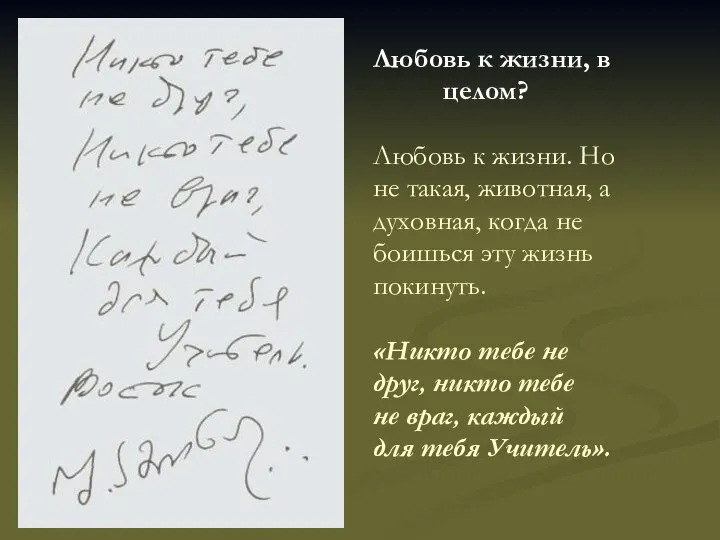 Никто тебе
не друг,
Никто тебе
не враг,
Каждый
для тебя
Учитель.
Восток
Любовь к жизни, в
целом?
Любовь к жизни. Но
не такая, животная, а
духовная, когда не
боишься эту жизнь
покинуть.
«Никто тебе не
друг, никто тебе
не враг, каждый
для тебя Учитель».